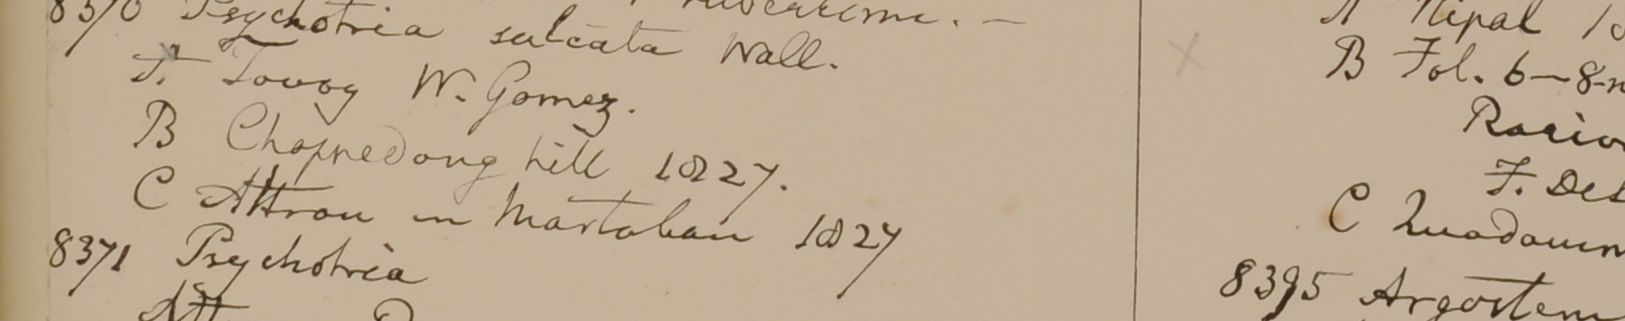 8370 Psychotria sulcata Wall.
A. Tavoy W. Gomez.
B Chappedong hill 1827.
C Attran in Martaban 1827
8371 Psychotria
A Nipal
B Fol. 6-8-n
C
8395 Argostem